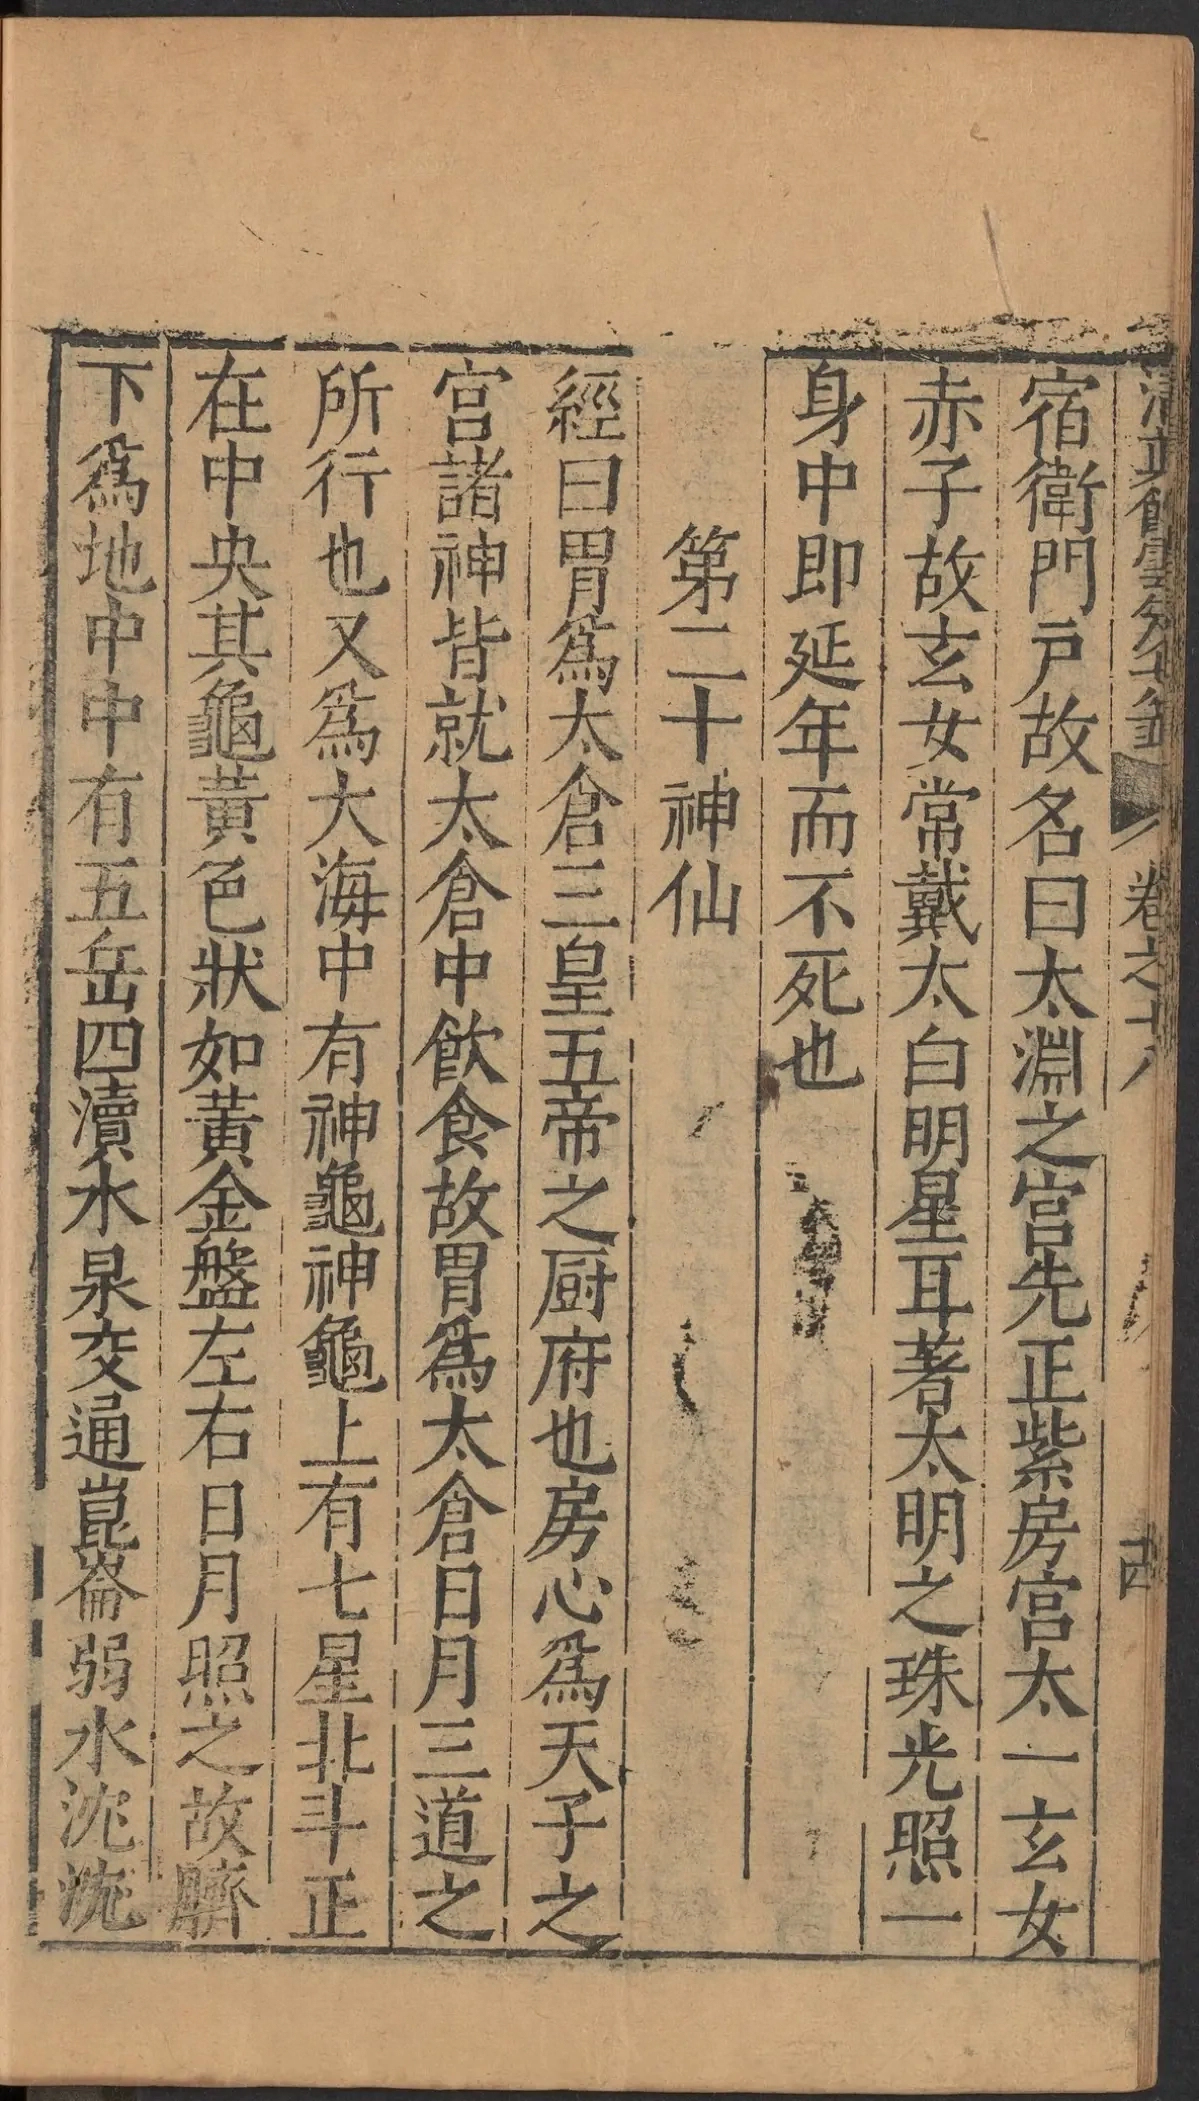 卷之十八
十四
宿衛門戶故名曰太淵之宮先正紫房宮太一玄女
赤子故玄女常戴太白明星耳著太明之珠光照一
身中即延年而不死也
第二十神仙
經曰胃爲太倉三皇五帝之厨府也房心爲天子之
宮諸神皆就太倉中飲食故胃爲太倉日月三道之
所行也又爲大海中有神龜神龜上有七星北斗正
在中央其龜黃色狀如黃金盤左右日月照之故臍
下爲地中中有五岳四瀆水泉交通崑崙弱水沈沈